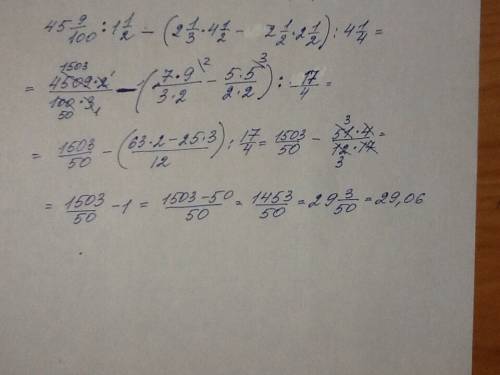 45 9/100 : 1 1/2 − (2 1/3 · 4 1/2 − 2 1/2 · 2 1/2) : 4 1/4 =
= 1503 4509·2 1/100·3 50 1 − (7·9/3·2 \2 − 5·5/2·2 \3) : 17/4 =
= 1503/50 − (63·2−25·3/12) : 17/4 = 1503/50 − 3 51·4/12·17 3 =
= 1503/50 − 1 = 1503−50/50 = 1453/50 = 29 3/50 = 29,06